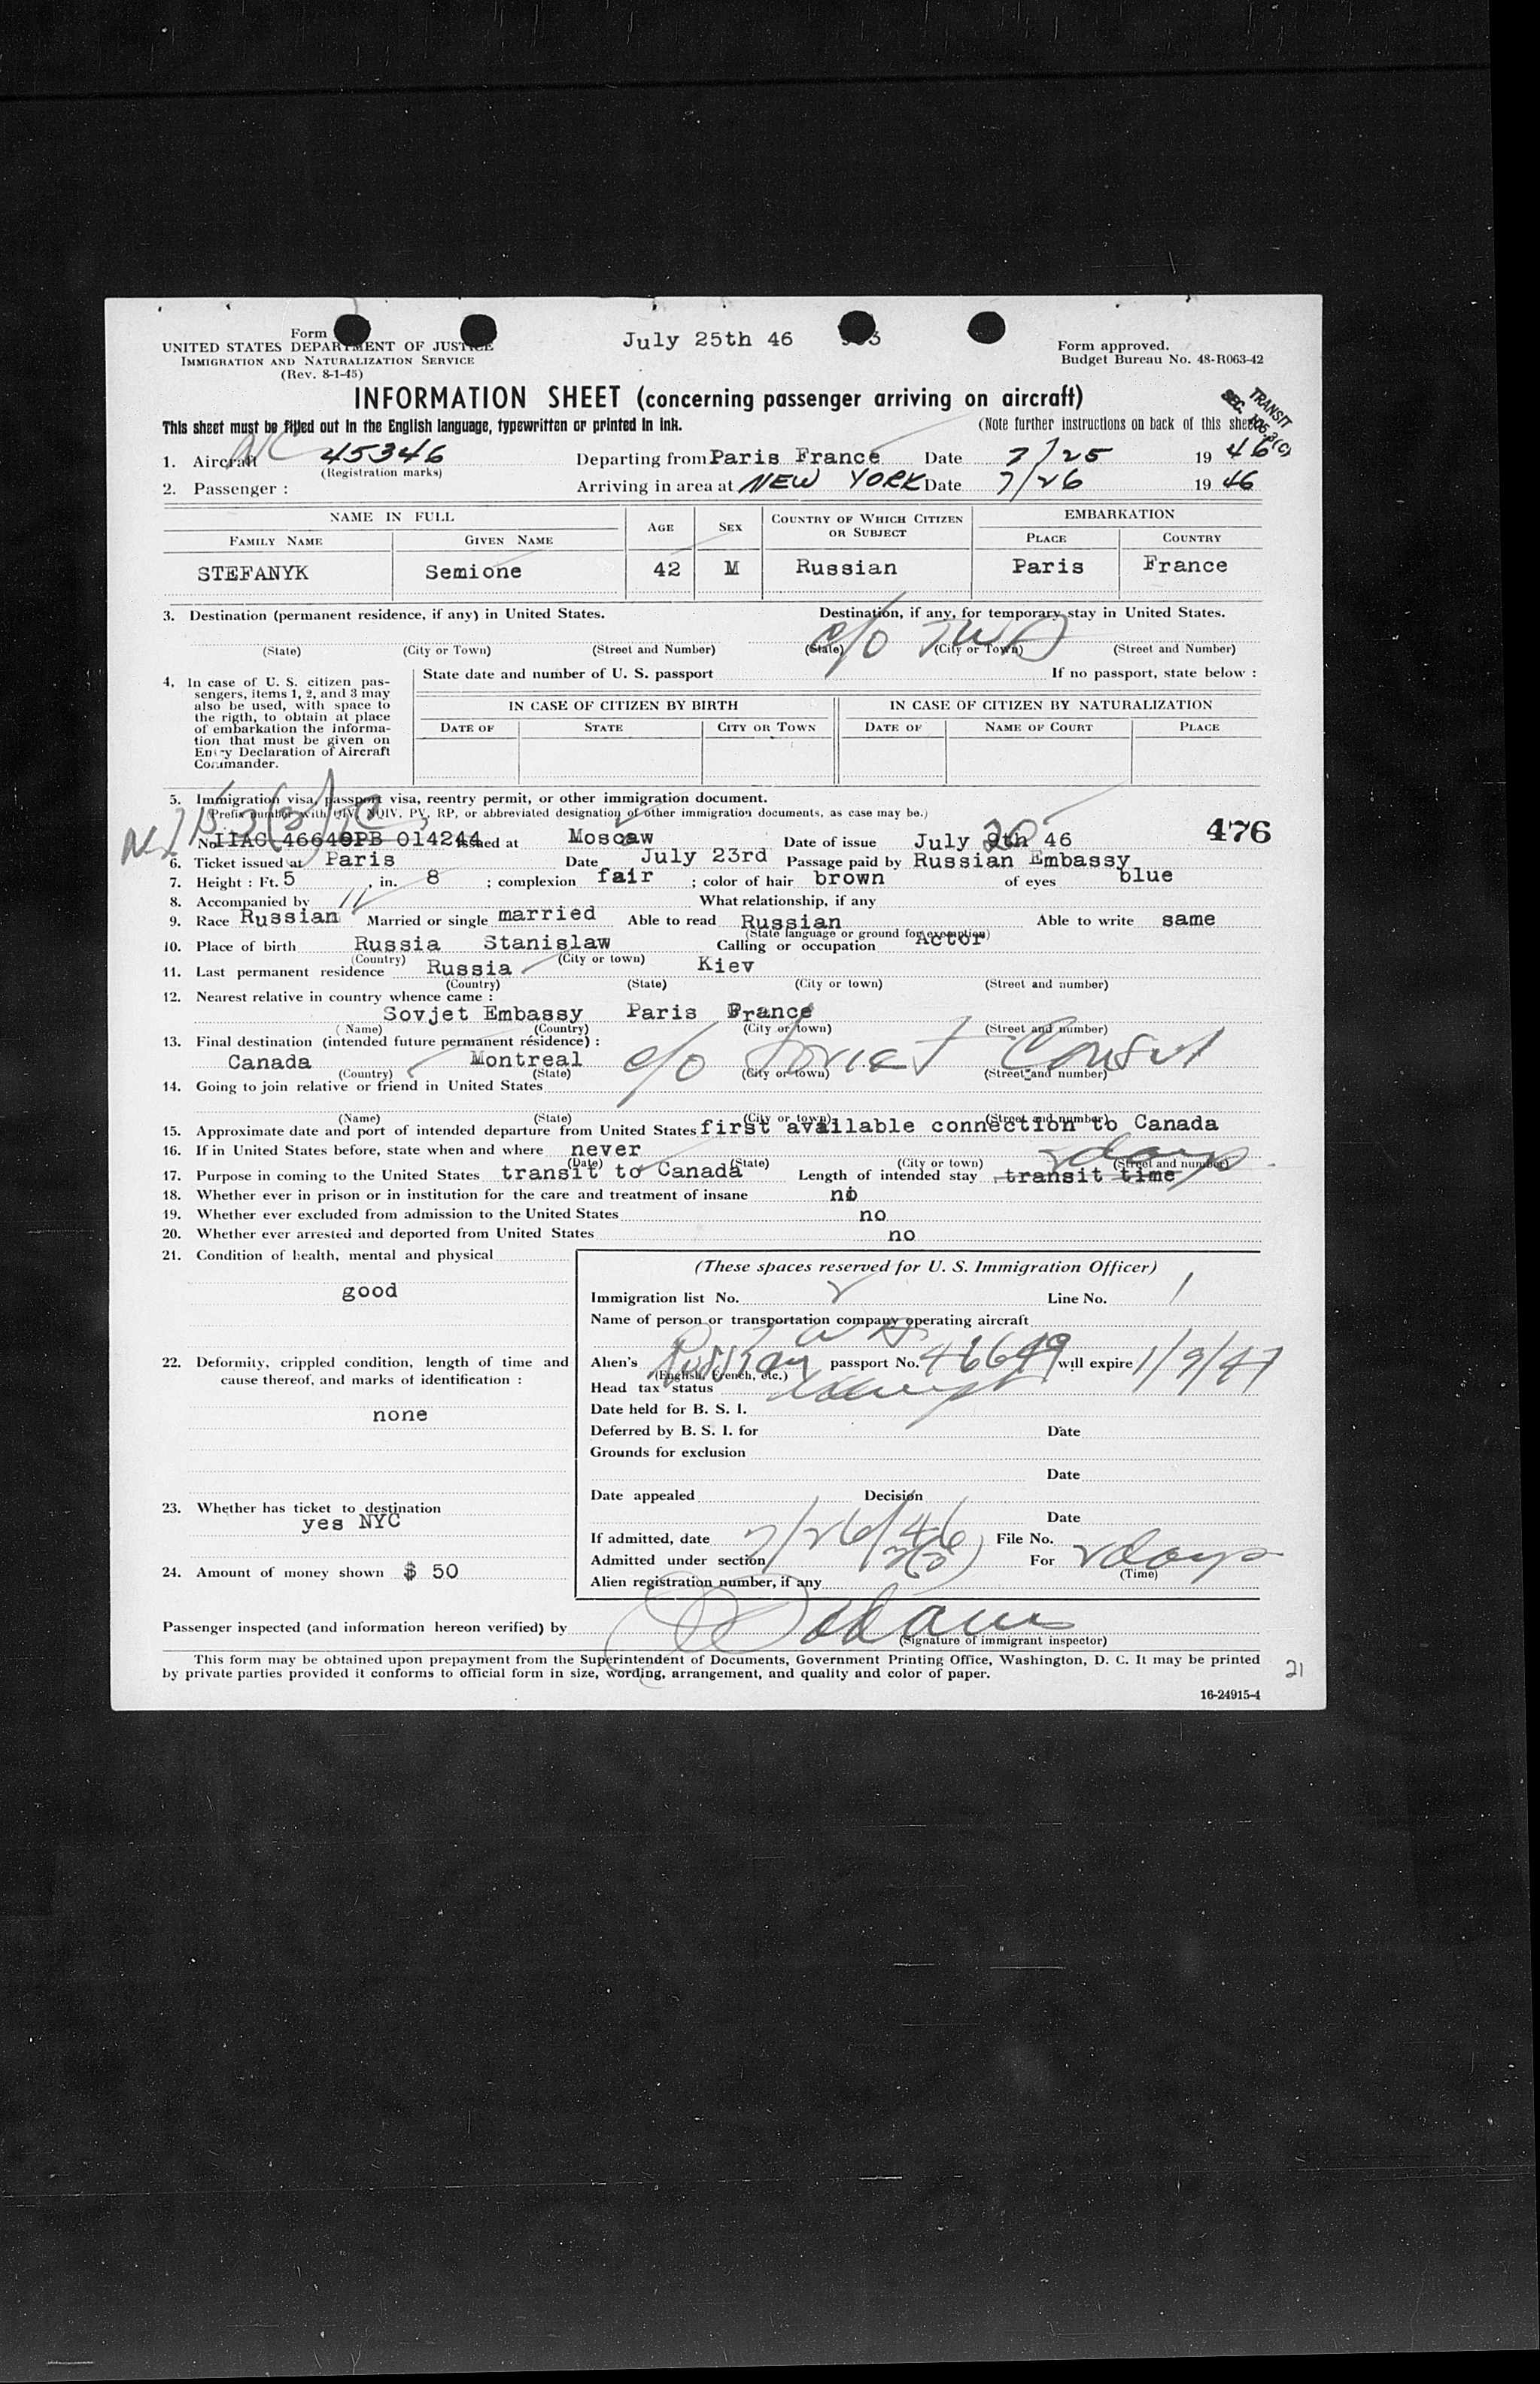 Form
July 25th 46
Form approved.
UNITED STATES DEPARTMENT OF JUSTICE
Budget Bureau No. 48-R063-42
IMMIGRATION AND NATURALIZATION SERVICE
(Rev. 8-1-45)
INFORMATION SHEET (concerning passenger arriving on aircraft)
TRANSIT
This sheet must be filled out in the English language, typewritten or printed in ink. (Note further instructions on back of this sheet)
1. Aircraft NC 45346 Departing from Paris France Date 7/25 19 46
(Registration marks)
2. Passenger : Arriving in area at NEW YORK Date 7/26 19 46
NAME IN FULL AGE SEX COUNTRY OF WHICH CITIZEN OR SUBJECT EMBARKATION
FAMILY NAME GIVEN NAME PLACE COUNTRY
STEFANYK Semione 42 M Russian Paris France
3. Destination (permanent residence, if any) in United States. Destination, if any, for temporary stay in United States.
c/o TWA
(State) (City or Town) (Street and Number) (State) (City or Town) (Street and Number)
4. In case of U. S. citizen pas-
sengers, items 1, 2, and 3 may
also be used, with space to
the rigth, to obtain at place
of embarkation the informa-
tion that must be given on
Entry Declaration of Aircraft
Commander.
State date and number of U. S. passport If no passport, state below :
IN CASE OF CITIZEN BY BIRTH IN CASE OF CITIZEN BY NATURALIZATION
DATE OF STATE CITY OR TOWN DATE OF NAME OF COURT PLACE
5. Immigration visa, passport visa, reentry permit, or other immigration document.
(Prefix number with QIV, NQIV, PV, RP, or abbreviated designation of other immigration documents, as case may be.)
No. 014244 issued at Moscaw Date of issue July 20 46 476
6. Ticket issued at Paris Date July 23rd Passage paid by Russian Embassy
7. Height : Ft. 5 , in. 8 ; complexion fair ; color of hair brown of eyes blue
8. Accompanied by What relationship, if any
9. Race Russian Married or single married Able to read Russian Able to write same
(State language or ground for exemption)
10. Place of birth Russia Stanislaw Calling or occupation Actor
(Country) (City or town)
11. Last permanent residence Russia Kiev
(Country) (State) (City or town) (Street and number)
12. Nearest relative in country whence came :
Sovjet Embassy Paris France
(Name) (Country) (City or town) (Street and number)
13. Final destination (intended future permanent résidence) :
Canada Montreal c/o Soviet Consul
(Country) (State) (City or town) (Street and number)
14. Going to join relative or friend in United States
(Name) (State) (City or town) (Street and number)
15. Approximate date and port of intended departure from United States first available connection to Canada
16. If in United States before, state when and where never
(Date) (State) (City or town) (Street and number)
2 days
17. Purpose in coming to the United States transit to Canada Length of intended stay transit time
18. Whether ever in prison or in institution for the care and treatment of insane no
19. Whether ever excluded from admission to the United States no
20. Whether ever arrested and deported from United States no
21. Condition of health, mental and physical
good
22. Deformity, crippled condition, length of time and
cause thereof, and marks of identification :
none
23. Whether has ticket to destination
yes NYC
24. Amount of money shown $ 50
(These spaces reserved for U. S. Immigration Officer)
Immigration list No. 2 Line No. 1
Name of person or transportation company operating aircraft
TWA
Alien's Russian passport No. 46649 will expire 1/9/47
(English, French, etc.)
Head tax status
Date held for B. S. I.
Deferred by B. S. I. for Date
Grounds for exclusion
Date
Date appealed Decision
Date
If admitted, date 7/26/46 File No.
Admitted under section 3(3) For 2 days
(Time)
Alien registration number, if any
Passenger inspected (and information hereon verified) by
(Signature of immigrant inspector)
This form may be obtained upon prepayment from the Superintendent of Documents, Government Printing Office, Washington, D. C. It may be printed
by private parties provided it conforms to official form in size, wording, arrangement, and quality and color of paper.
21
16-24915-4